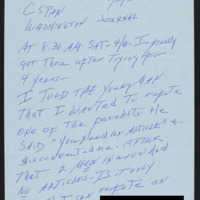 C SPAN
WASHINGTON JOURNAL
At 8:30 AM SAT - I finally
got thru after trying for
4 years -
I TOLD THE Young MAN
that I wanted to refute
one of the panelists He
SAID "you need an ARTICLE" &
disconnected me. AFTER
that 2 MEN
No ARTICLES - Is it only
I can refute an